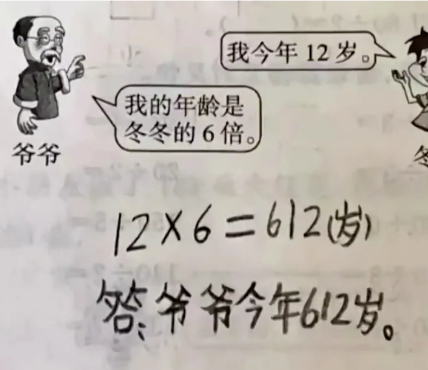 我今年 12 岁。
我的年龄是
冬冬的 6 倍。
爷爷
冬
12×6=612(岁)
答:爷爷今年612岁。